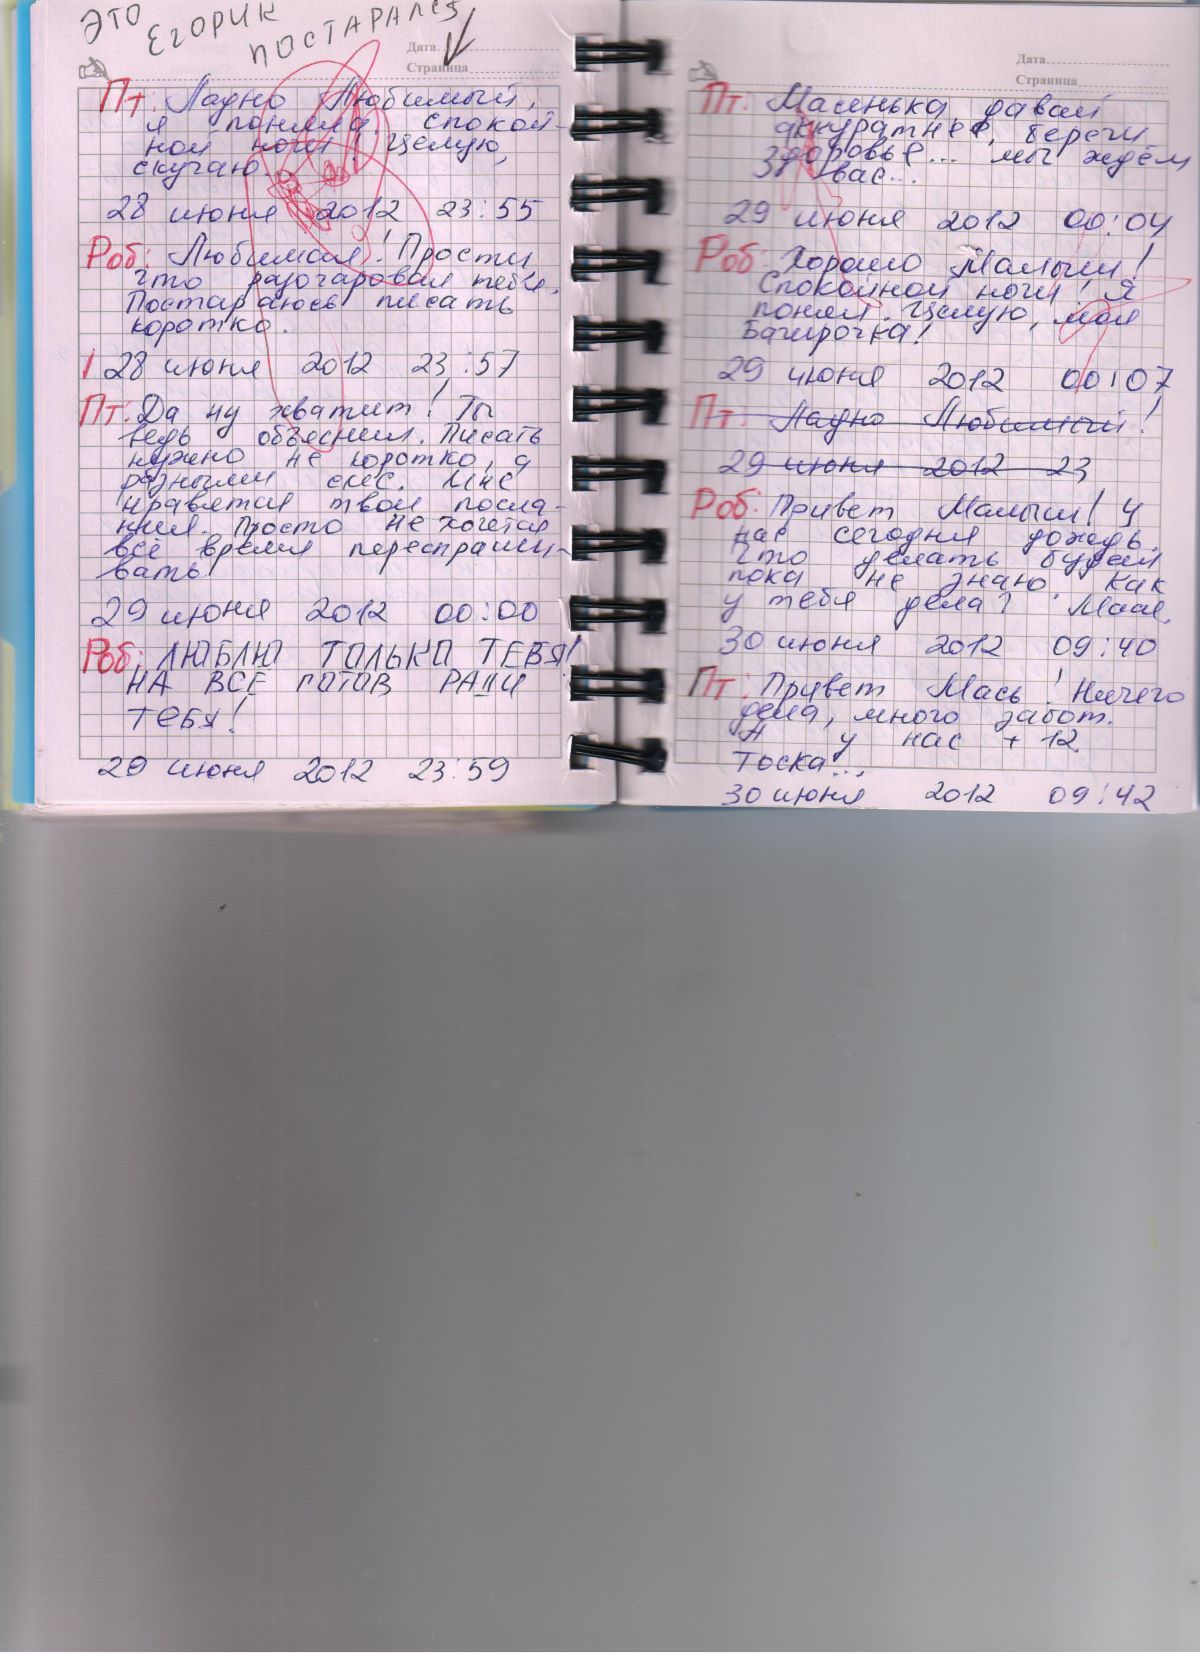 ЭТО
ЕГОРИК
ПОСТАРАЛСЯ
Дата
Страница
Пт: Ладно Любимый,
я поняла. спокой-
ной ночи! Целую,
скучаю.
28 июня 2012 23:55
Роб: Любимая! Прости
что разочаровал тебя.
Постараюсь писать
коротко.
28 июня 2012 23:57
Пт: Да ну хватит! Ты
ведь объяснил. Писать
нужно не коротко, а
разными смс. Мне
нравятся твои посла-
ния. Просто не хочется
всё время переспраши-
вать!
29 июня 2012 00:00
Роб: ЛЮБЛЮ ТОЛЬКО ТЕБЯ!
НА ВСЕ ГОТОВ РАДИ
ТЕБЯ!
29 июня 2012 23:59
Дата
Страница
Пт: Масенька давай
аккуратнее, береги
здоровье... мы ждём
вас...
29 июня 2012 00:04
Роб: Хорошо Малыш!
Спокойной ночи! Я
понял. Целую, моя
Багирочка!
29 июня 2012 00:07
Пт: Ладно Любимый!
29 июня 2012 23
Роб: Привет Малыш! У
нас сегодня дождь.
Что делать будем
пока не знаю. Как
у тебя дела?
30 июня 2012 09:40
Пт: Привет Мась! Ничего
дела, много забот.
А у нас +12.
Тоска...
30 июня 2012 09:42